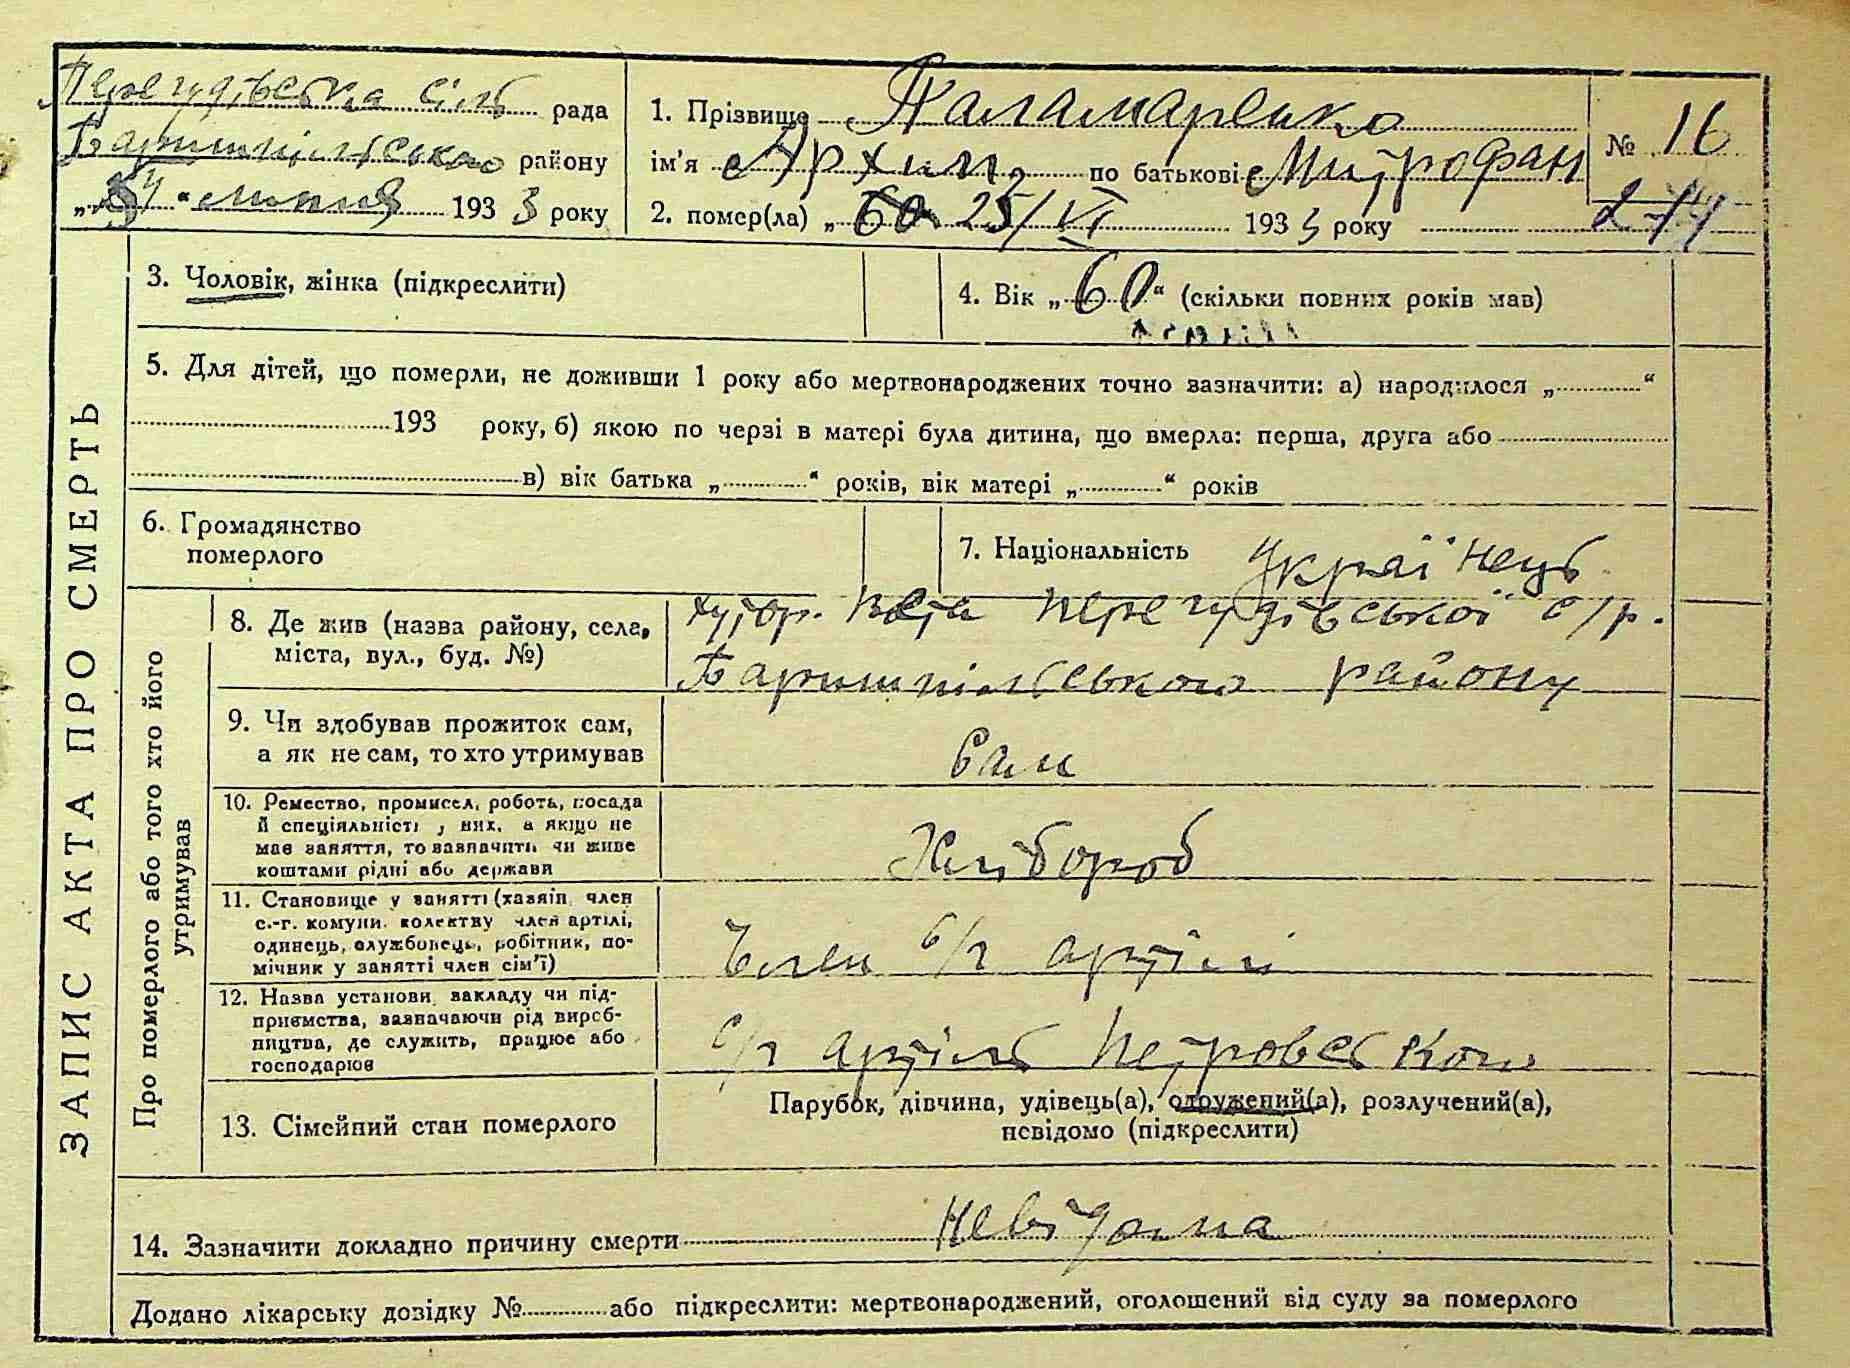 Перегудівська сіль рада
Баришпільського району
„ 4 “ липня 1933 року
1. Прізвище Паламаренко
ім'я Архип по батькові Митрофан
№ 16
2. помер(ла) „ 25/VI 1933 року
ЗАПИС АКТА ПРО СМЕРТЬ
3. Чоловік, жінка (підкреслити)
4. Вік „60“ (скільки повних років мав)
5. Для дітей, що померли, не доживши 1 року або мертвонароджених точно зазначити: а) народилося „ “
193 року, б) якою по черзі в матері була дитина, що вмерла: перша, друга або
в) вік батька „ “ років, вік матері „ “ років
6. Громадянство
померлого
7. Національність Українець
Про померлого або того хто його
утримував
8. Де жив (назва району, села,
міста, вул., буд. №)
хутор. Перегудівської с/р.
Баришпільського району
9. Чи здобував прожиток сам,
а як не сам, то хто утримував
Сам
10. Ремество, промисел, робота, посада
й спеціяльність у них, а якщо не
має заняття, то зазначить чи живе
коштами рідні або держави
Хлібороб
11. Становище у занятті (хазяїн, член
с.-г. комуни, колективу член артілі,
одинець, службовець, робітник, по-
мічник у занятті член сім'ї)
Член с/г артілі
12. Назва установи, закладу чи під-
приємства, зазначаючи рід вироб-
ництва, де служить, працює або
господарює
с/г артіль Петровського
13. Сімейний стан померлого
Парубок, дівчина, удівець(а), одружений(а), розлучений(а),
невідомо (підкреслити)
14. Зазначити докладно причину смерти невідома
Додано лікарську довідку № або підкреслити: мертвонароджений, оголошений від суду за померлого